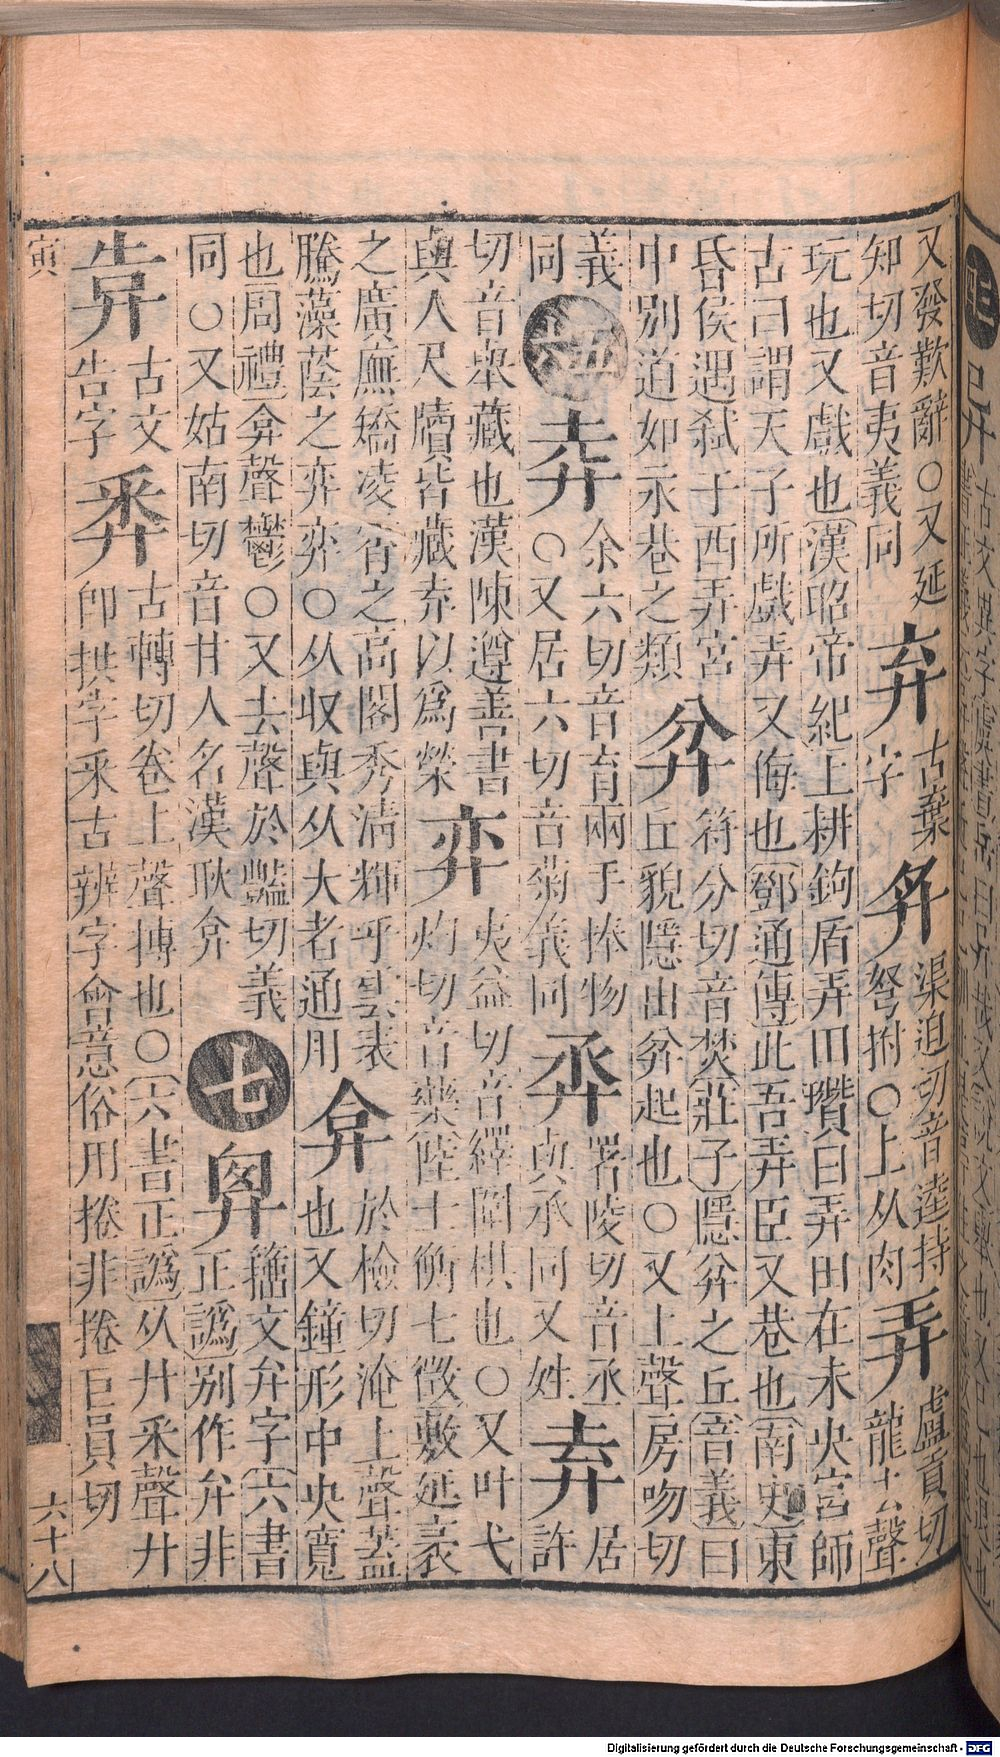 又發歎辭○又延
知切音夷義同
弃
古棄
字
𢌬
渠追切音逵持
弩拊○上从肉
弄
盧貢切
龍去聲
玩也又戲也漢昭帝紀上耕鉤盾弄田瓚曰弄田在未央宮師
古曰謂天子所戲弄又侮也鄧通傳此吾弄臣又巷也南史東
昏侯遇弑于西弄宮
中別道如永巷之類
弅
符分切音焚莊子隱弅之丘音義曰
丘貌隱出弅起也○又上聲房吻切
義
同
五
六
𢌳
余六切音育兩手捧物
○又居六切音菊義同
𢌱
署陵切音丞
與承同又姓
弆
居
許
切音舉藏也漢陳遵善書
與人尺牘皆藏弆以爲榮
弈
夷益切音繹圍棋也○又叶弋
灼切音藥陸士衡七徵敷延袤
之廣廡矯凌霄之高閣秀清輝乎雲表
騰藻蔭之弈弈○从収與从大者通用
弇
於檢切淹上聲蓋
也又鐘形中央寬
也周禮弇聲鬱○又去聲於豔切義
同○又姑南切音甘人名漢耿弇
七
𢍎
籀文弁字六書
正譌別作弁非
𢍏
古文
告字
𢍕
古轉切卷上聲摶也○六書正譌从廾釆聲廾
卽拱字釆古辨字會意俗用捲非捲巨員切
寅
六十八
Digitalisierung gefördert durch die Deutsche Forschungsgemeinschaft - DFG